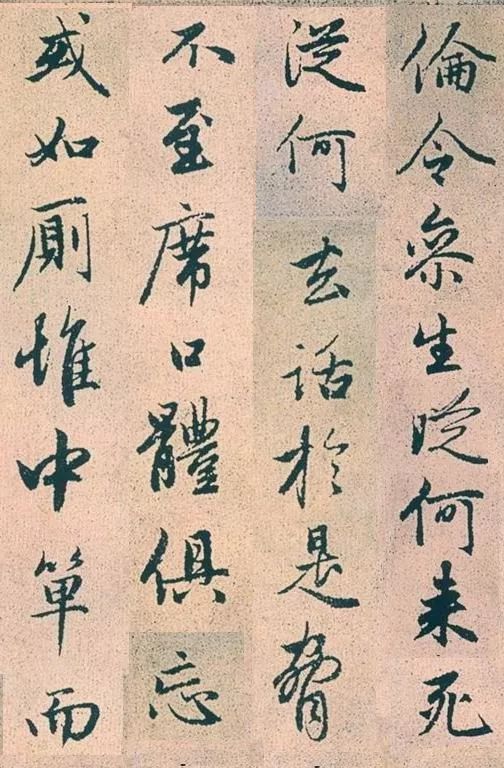 倫令衆生從何來死
從何去話於是脅
不至席口體俱忘
或如厠惟中單而